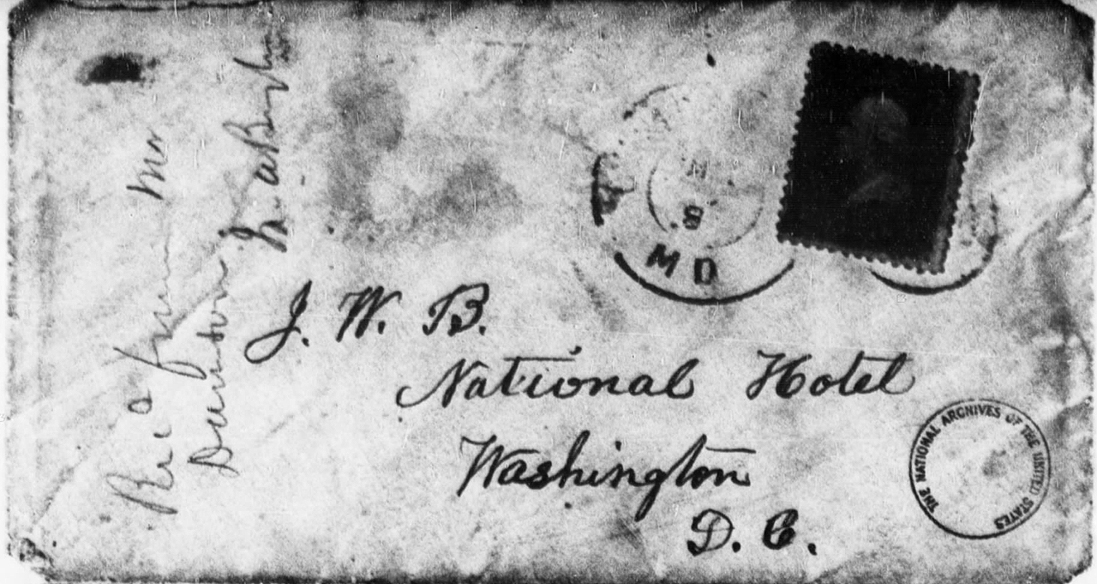 J. W. B.
National Hotel
Washington
D. C.
MD
8
THE NATIONAL ARCHIVES OF THE UNITED STATES
from Mr